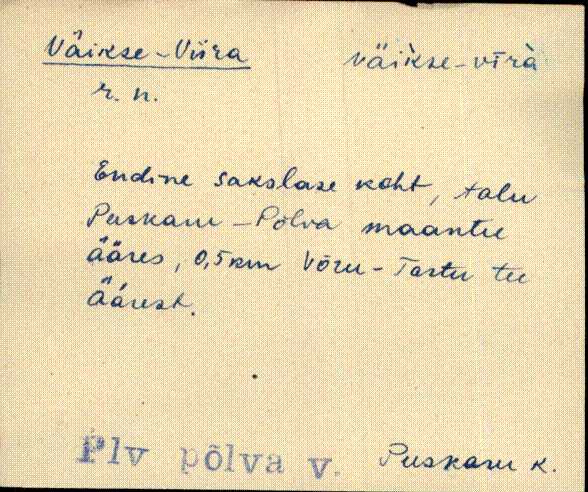 Väikse-Viira väìkse-vīrà
r. n.
Endine sakslase koht, talu
Puskaru - Põlva maantee
ääres, 0,5 km Võru - Tartu tee
äärest.
Plv põlva v. Puskaru k.